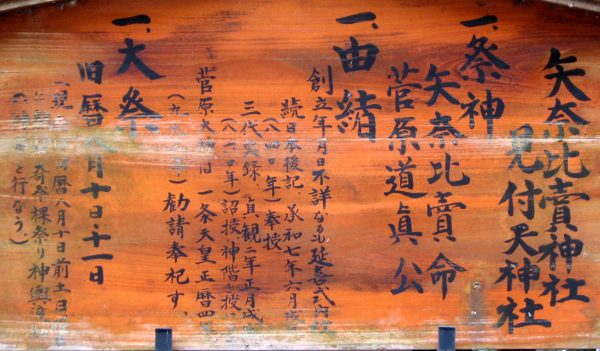 矢奈比賣神社
見付天神社
一、祭神
矢奈比賣命
菅原道眞公
一、由緒
創立年月日不詳なるも延喜式内社
続日本後記、承和七年六月
(八四〇年)奉授
三代実録、貞観二年正月
(八六〇年)詔授神階
菅原大神は、一条天皇正暦四年
勧請奉祀す、
一、大祭
旧暦八月十日・十一日
暦八月十日前土日
裸祭り神輿渡
と行なう)